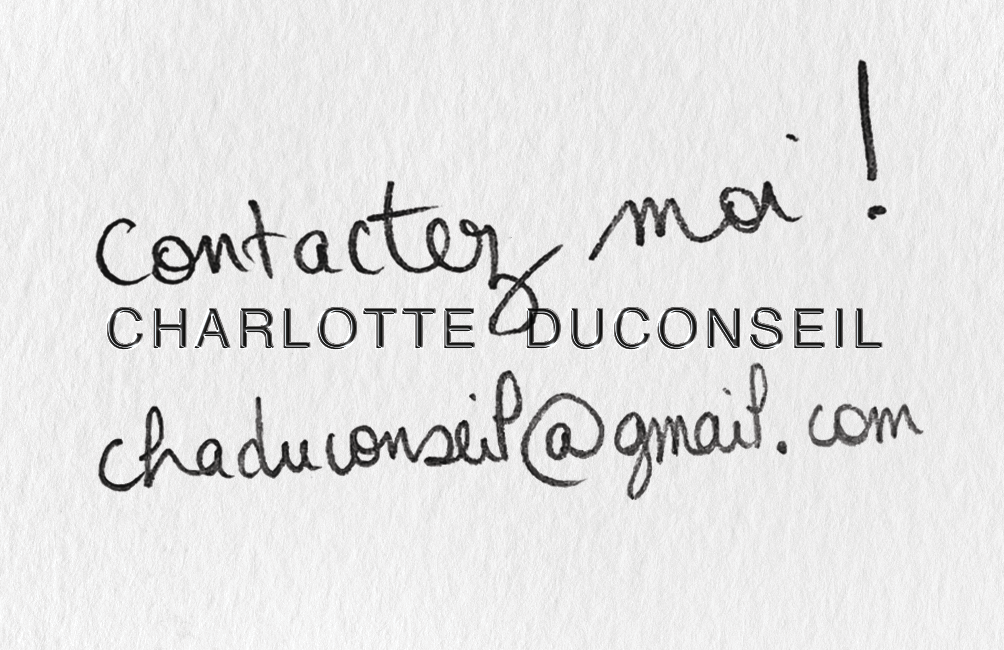 contactez moi !
CHARLOTTE DUCONSEIL
chaduconseil@gmail.com